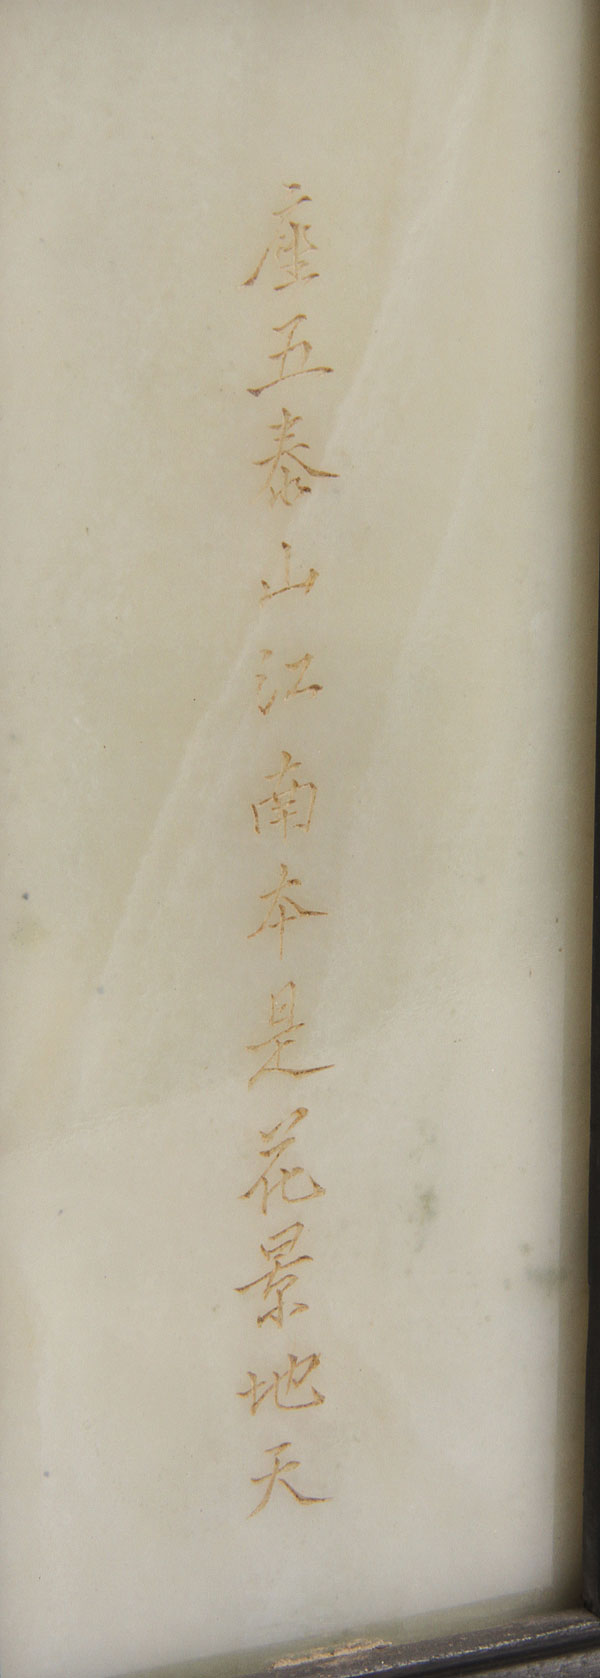 座五泰山江南本是花景地天